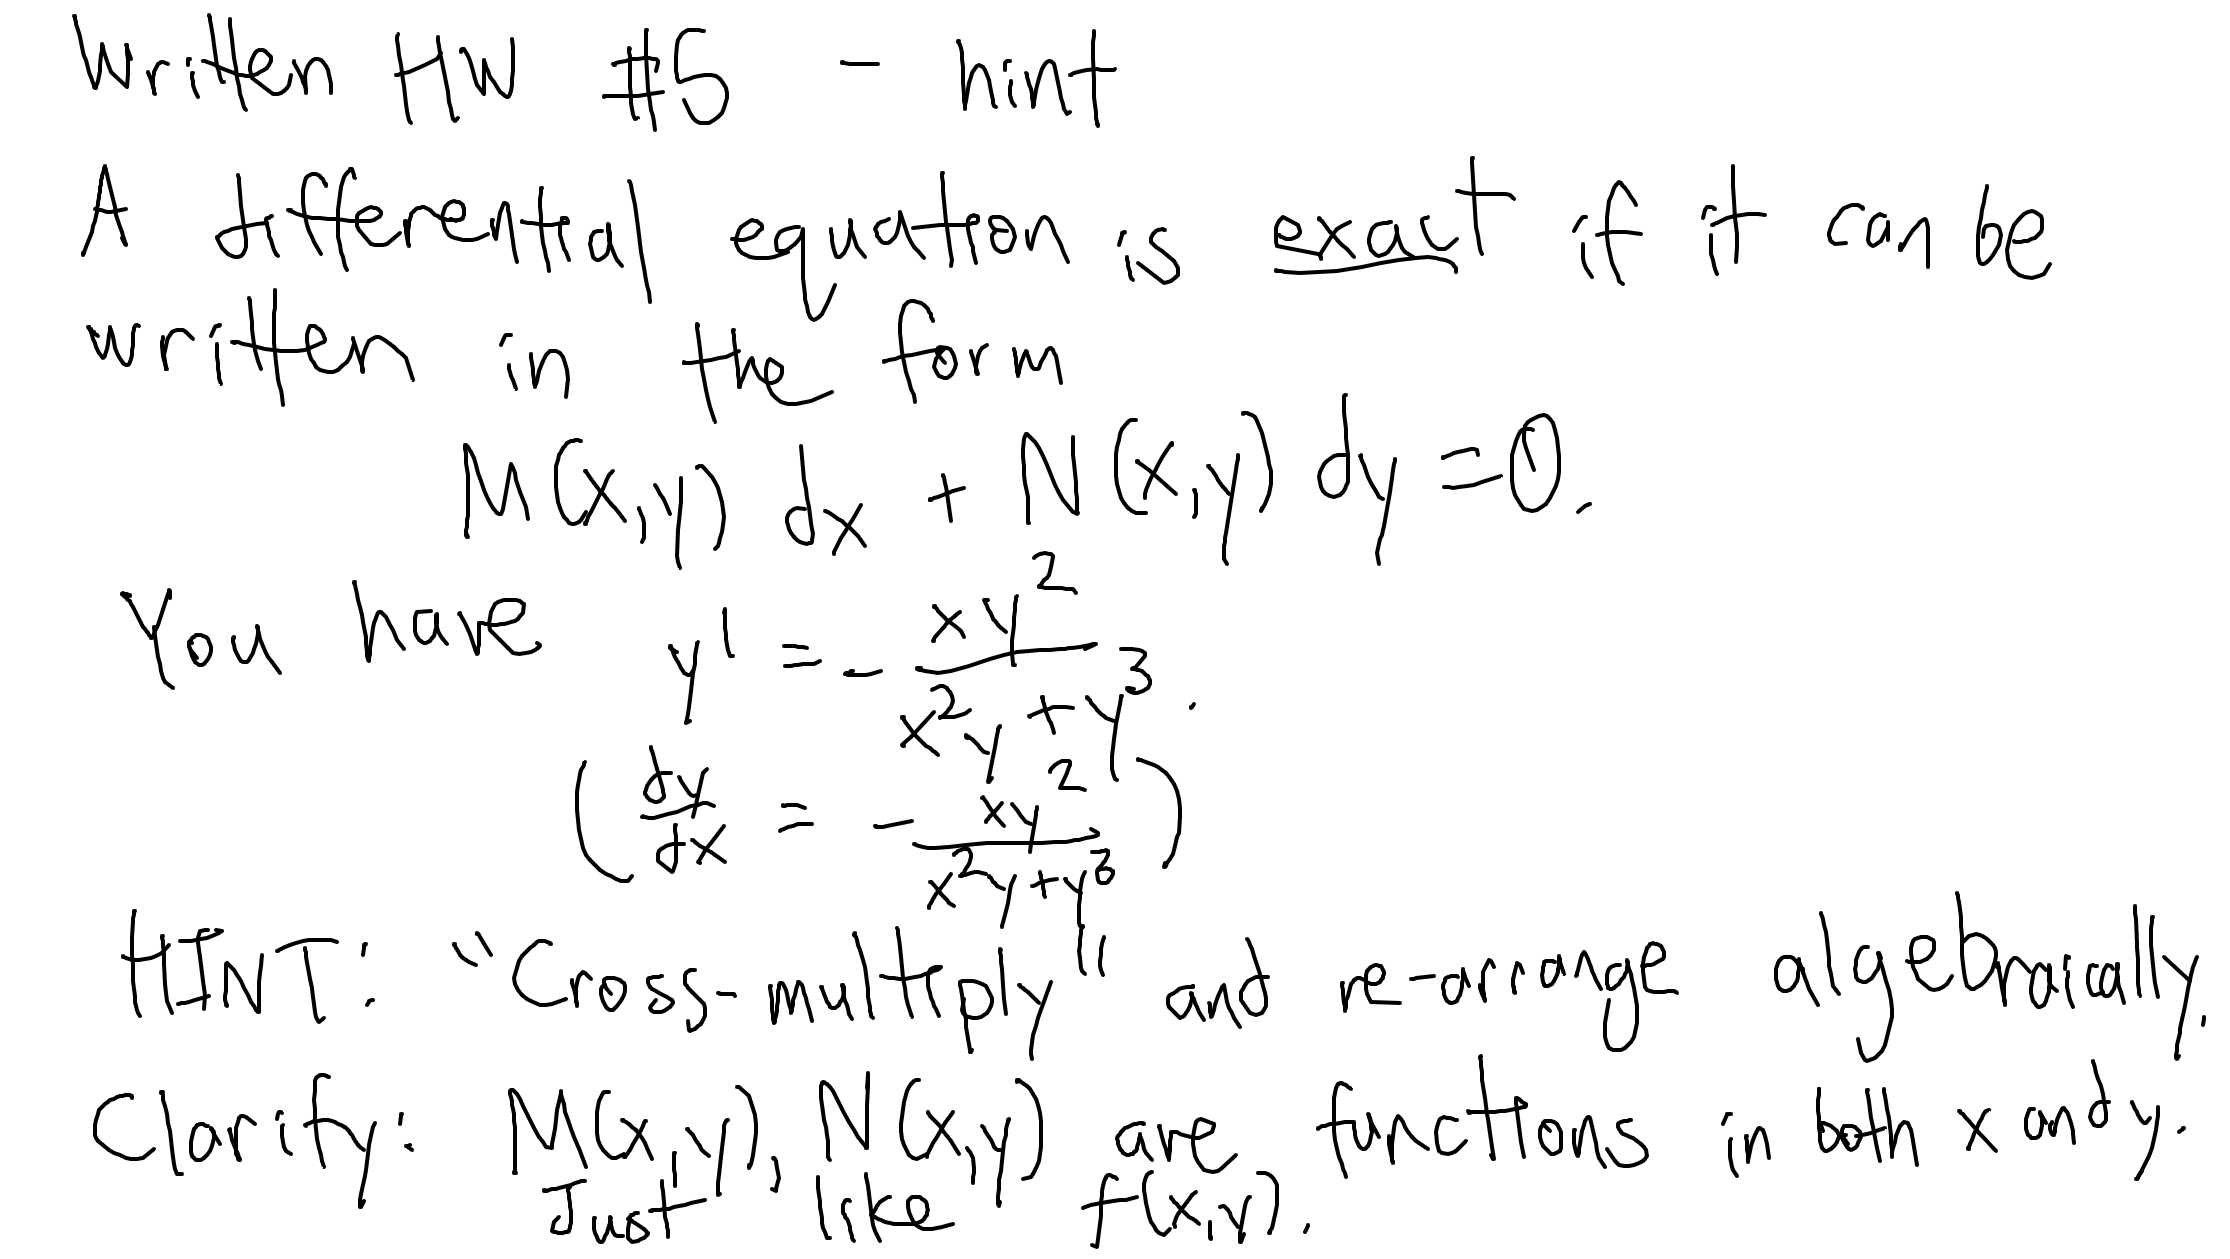 Written HW #5 - hint
A differential equation is exact if it can be
written in the form
M(x,y) dx + N(x,y) dy = 0.
You have y' = - xy² / (x²y + y³).
(dy/dx = - xy² / (x²y + y³))
HINT: "Cross-multiply" and re-arrange algebraically.
Clarify: M(x,y), N(x,y) are functions in both x and y.
Just like f(x,y).